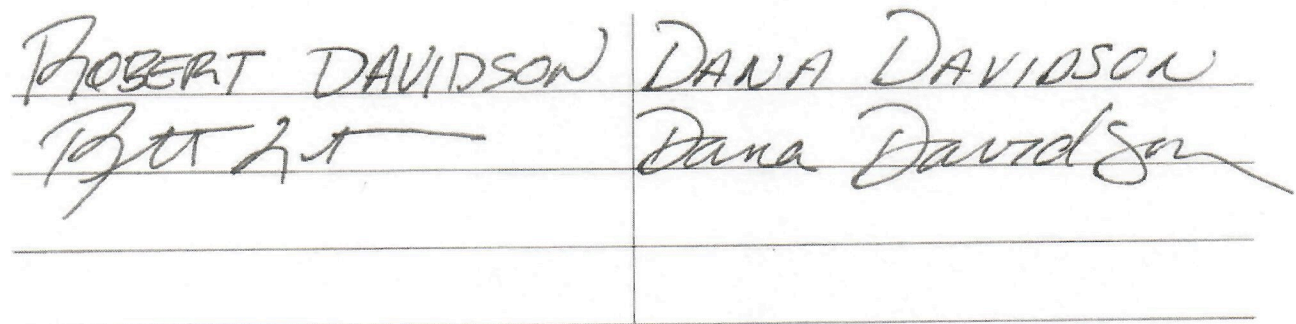 ROBERT DAVIDSON DANA DAVIDSON
Dana Davidson